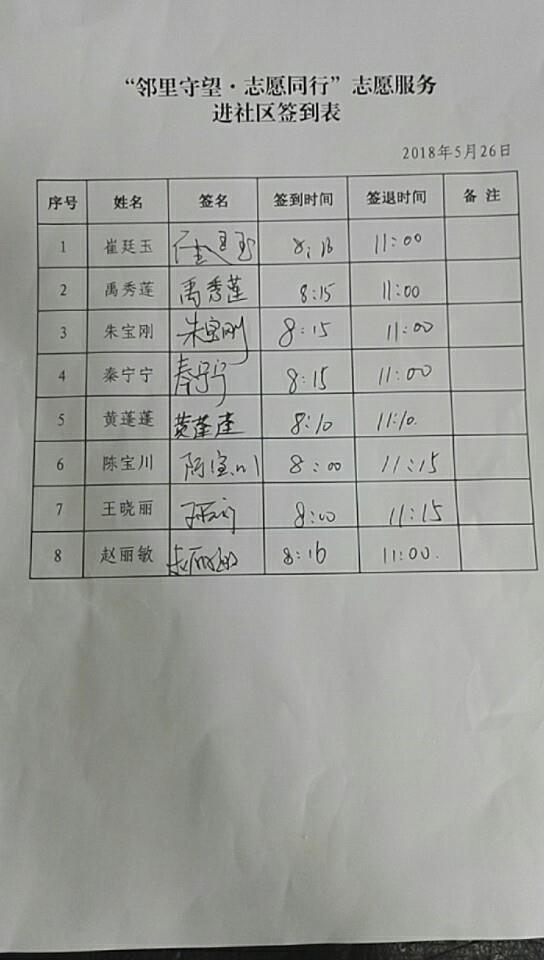 “邻里守望·志愿同行”志愿服务
进社区签到表
2018年5月26日
序号 姓名 签名 签到时间 签退时间 备注
1 崔廷玉 8:16 11:00
2 禹秀莲 禹秀莲 8:15 11:00
3 朱宝刚 朱宝刚 8:15 11:00
4 秦宁宁 秦宁宁 8:15 11:00
5 黄蓬蓬 黄蓬蓬 8:10 11:10.
6 陈宝川 陈宝川 8:00 11:15
7 王晓丽 8:00 11:15
8 赵丽敏 赵丽敏 8:16 11:00.